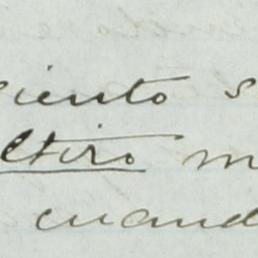 iento s
ltiro m
cuand